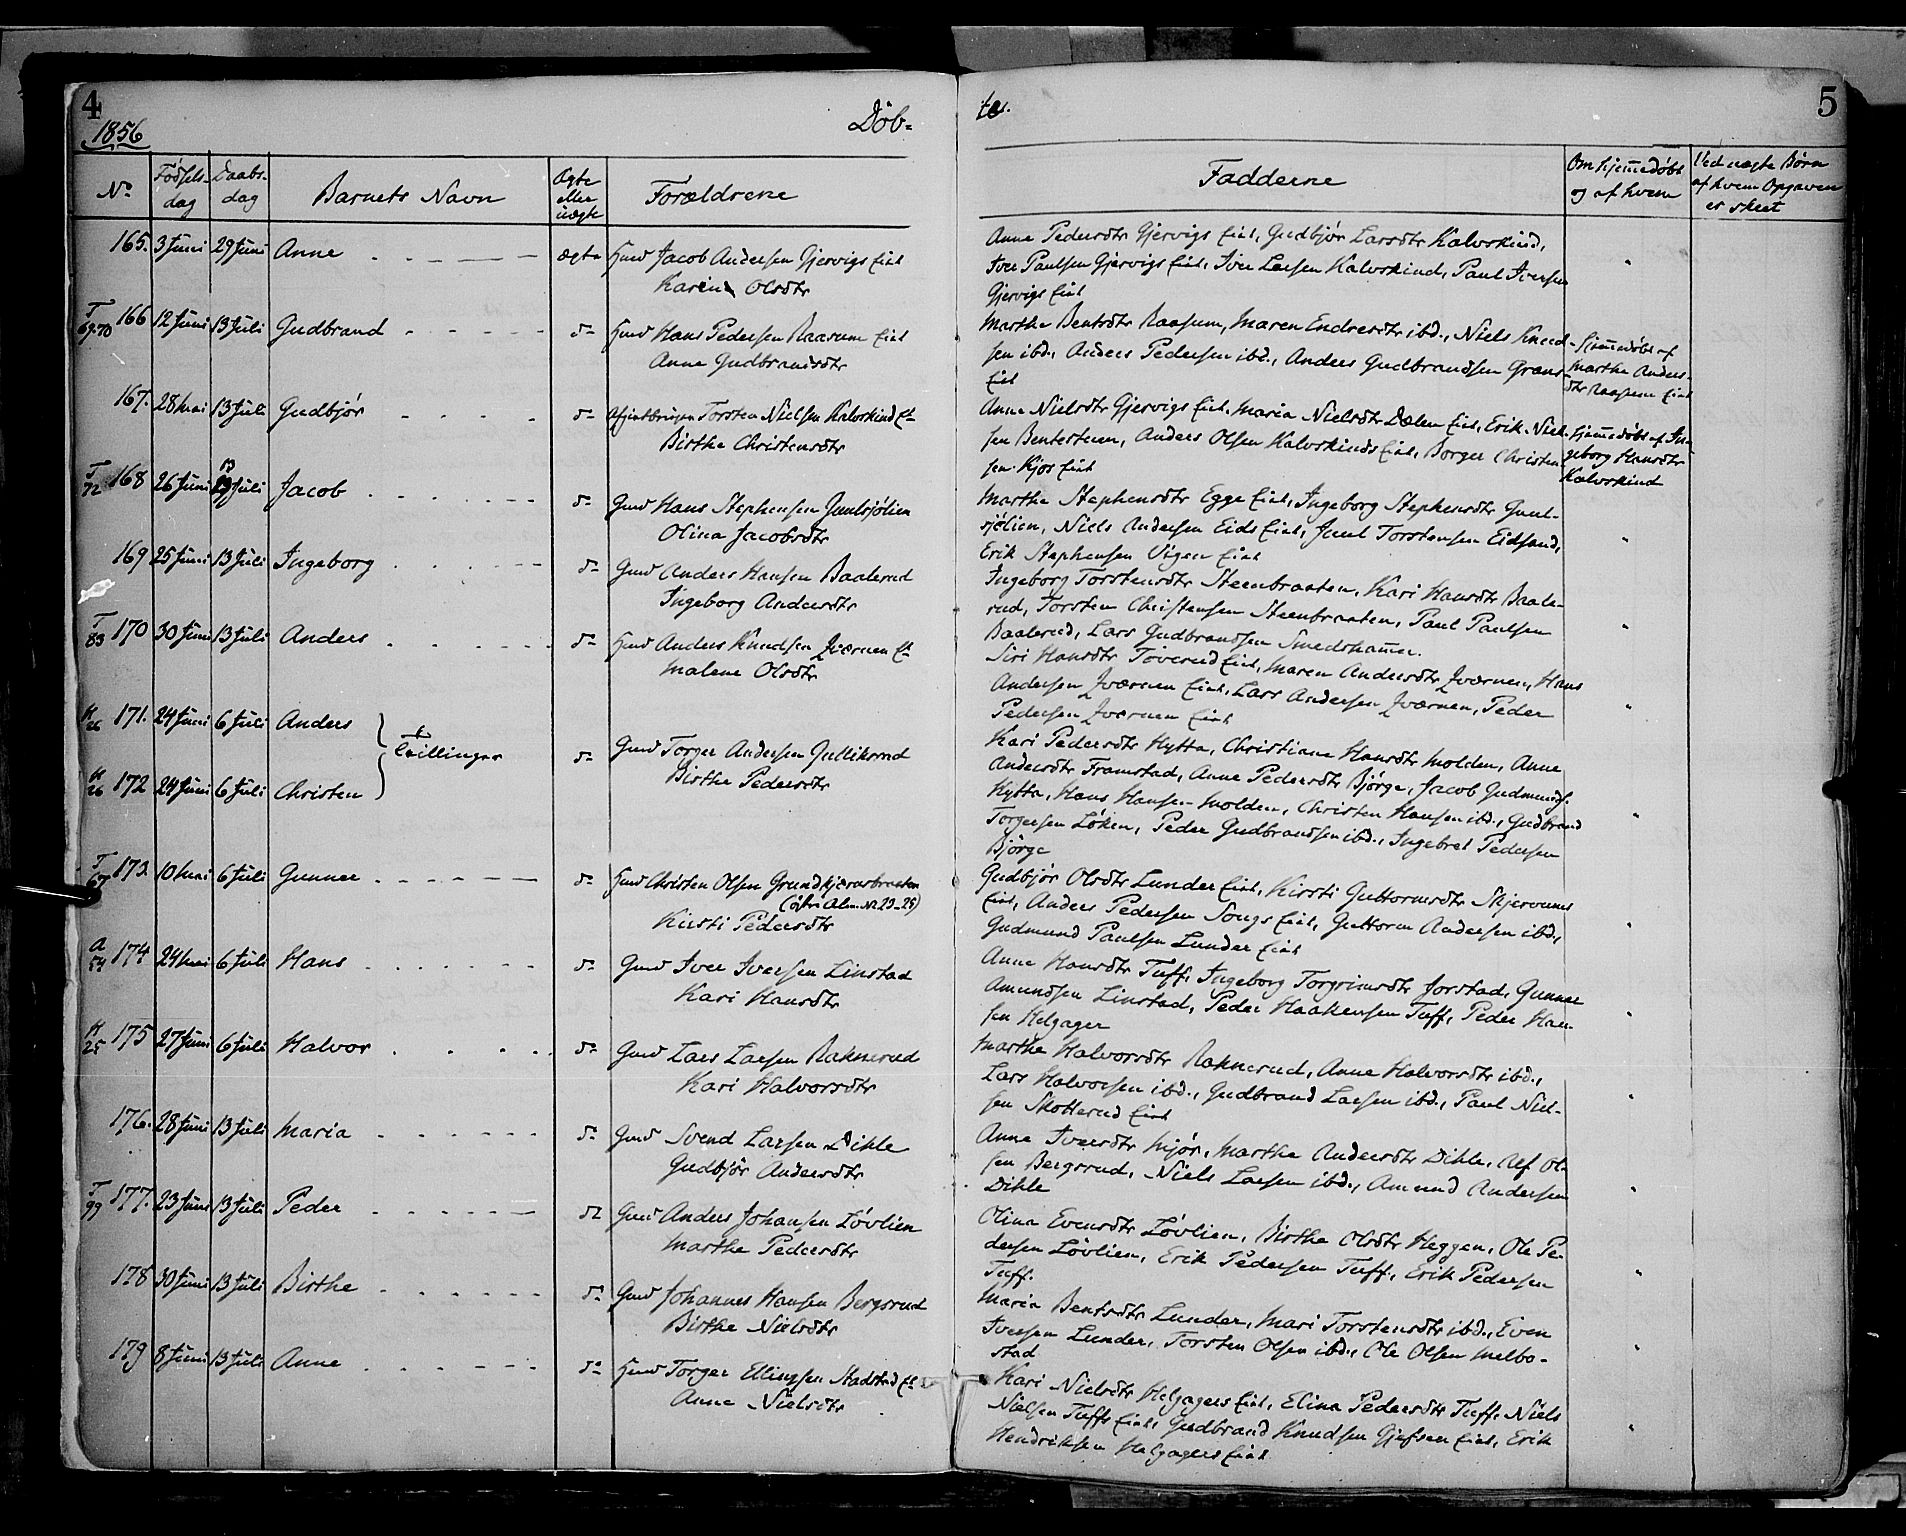 4
1856
Døb-
No.
Fødsels-
dag
Daabs-
dag
Barnets Navn
Ægte
eller
uægte
Forældrene
165. 3 Juni 29 Juni Anne ægte Huusm Jacob Andersen Gjervigs Eie
Karen Olsdtr
T 69.70 166 12 Juni 13 Juli Gudbrand do Huusm Hans Pedersen Raasum Eie
Anne Gudbrandsdtr
167. 28 Mai 13 Juli Gudbjør do Torsten Nielsen Kalvskind
Birthe Christensdtr
T 72 168 26 Juni 13 Juli Jacob do Gmd Hans Stephensen Juulsjølien
Olina Jacobsdtr
169 25 Juni 13 Juli Ingeborg do Gmd Anders Hansen Baalerud
Ingeborg Andersdtr
T 83 170 30 Juni 13 Juli Anders do Huusm Anders Knudsen Qværnen
Malene Olsdtr
H 26 171. 24 Juni 6 Juli Anders
Tvillinger do Gmd Torger Andersen Gulliksrud
Birthe Pedersdtr
H 26 172 24 Juni 6 Juli Christen
T 67 173. 10 Mai 6 Juli Gunner do Huusm Christen Olsen Grundkjærnsbraaten
Kirsti Pedersdtr
A 54 174 24 Mai 6 Juli Hans do Gmd Iver Iversen Linstad
Kari Hansdtr
H 25 175 27 Juni 6 Juli Halvor do Gmd Lars Larsen Raknerud
Kari Halvorsdtr
176. 28 Juni 13 Juli Maria do Gmd Svend Larsen Dihle
Gudbjør Andersdtr
T 99 177. 23 Juni 13 Juli Peder do Gmd Anders Johansen Løvlien
Marthe Pedersdtr
178 30 Juni 13 Juli Birthe do Gmd Johannes Hansen Bergsrud
Birthe Nielsdtr
179 8 Juni 13 Juli Anne do Huusm Torger Ellingsen Hadstad
Anne Nielsdtr
te.
5
Fadderne
Om hjemedøbt
og af hvem
Ved uægte Børn
af hvem Opgaven
er skeet
Anne Pedersdtr Gjervigs Eie, Gudbjør Larsdtr Kalvskind,
Iver Paulsen Gjervigs Eie, Iver Larsen Kalvskind, Paul Iversen
Gjervigs Eie
Marthe Bentsdtr Raasum, Maren Endresdtr ibd., Niels Knud-
sen ibd., Anders Pedersen ibd., Anders Gudbrandsen Grans-
Eie
Hjemedøbt af
Marthe Anders-
dtr Raasum Eie
Anne Nielsdtr Gjervigs Eie, Maria Nielsdtr Dælen Eie, Erik Niel-
sen Bentestuen, Anders Olsen Kalvskinds Eie, Borger Christen-
sen Kjos Eie
Hjemedøbt af In-
geborg Hansdtr
Kalvskind
Marthe Stephensdtr Egge Eie, Ingeborg Stephensdtr Juul-
sjølien, Niels Andersen Eids Eie, Juul Torstensen Eidsand,
Erik Stephensen Vigen Eie
Ingeborg Torstensdtr Steenbraaten, Kari Hansdtr Baale-
rud, Torsten Christensen Steenbraaten, Paul Paulsen
Baalerud, Lars Gudbrandsen Smedshamer.
Siri Hansdtr Tøverud Eie, Maren Andersdtr Qværnen, Hans
Andersen Qværnen Eie, Lars Andersen Qværnen, Peder
Pedersen Qværnen Eie
Kari Pedersdtr Hytta, Christiane Hansdtr Molden, Anne
Andersdtr Framstad, Anne Pedersdtr Bjørge, Jacob Gudmunds.
Hytta, Hans Hansen Molden, Christen Hansen ibd., Gudbrand
Torgersen Løken, Peder Gudbrandsen ibd., Ingebret Pedersen
Bjørge
Gudbjør Olsdtr Lunder Eie, Kirsti Guttormsdtr Skjervums
Eie, Anders Pedersen Sougs Eie, Guttorm Andersen ibd.,
Gudmund Paulsen Lunder Eie
Anne Hansdtr Tuff, Ingeborg Torgrimsdtr Jorstad, Gunner
Amundsen Linstad, Peder Haakensen Tuff, Peder Han-
sen Helgager
Marthe Halvorsdtr Raknerud, Anne Halvorsdtr ibd.,
Lars Halvorsen ibd., Gudbrand Larsen ibd., Paul Niel-
sen Skotterud Eie
Anne Iversdtr Mjør, Marthe Andersdtr Dihle, Alf Ol-
sen Bergsrud, Niels Larsen ibd., Amund Andersen
Dihle
Olina Evensdtr Løvlien, Birthe Olsdtr Heggen, Ole Pe-
dersen Løvlien, Erik Pedersen Tuff, Erik Pedersen
Tuff.
Maria Bentsdtr Lunder, Mari Torstensdtr ibd., Even
Iversen Lunder, Torsten Olsen ibd., Ole Olsen Melbo-
stad
Kari Nielsdtr Helgagers Eie, Elina Pedersdtr Tuff, Niels
Nielsen Tuffs Eie, Gudbrand Knudsen Gjefsen Eie, Erik
Hendriksen Helgagers Eie